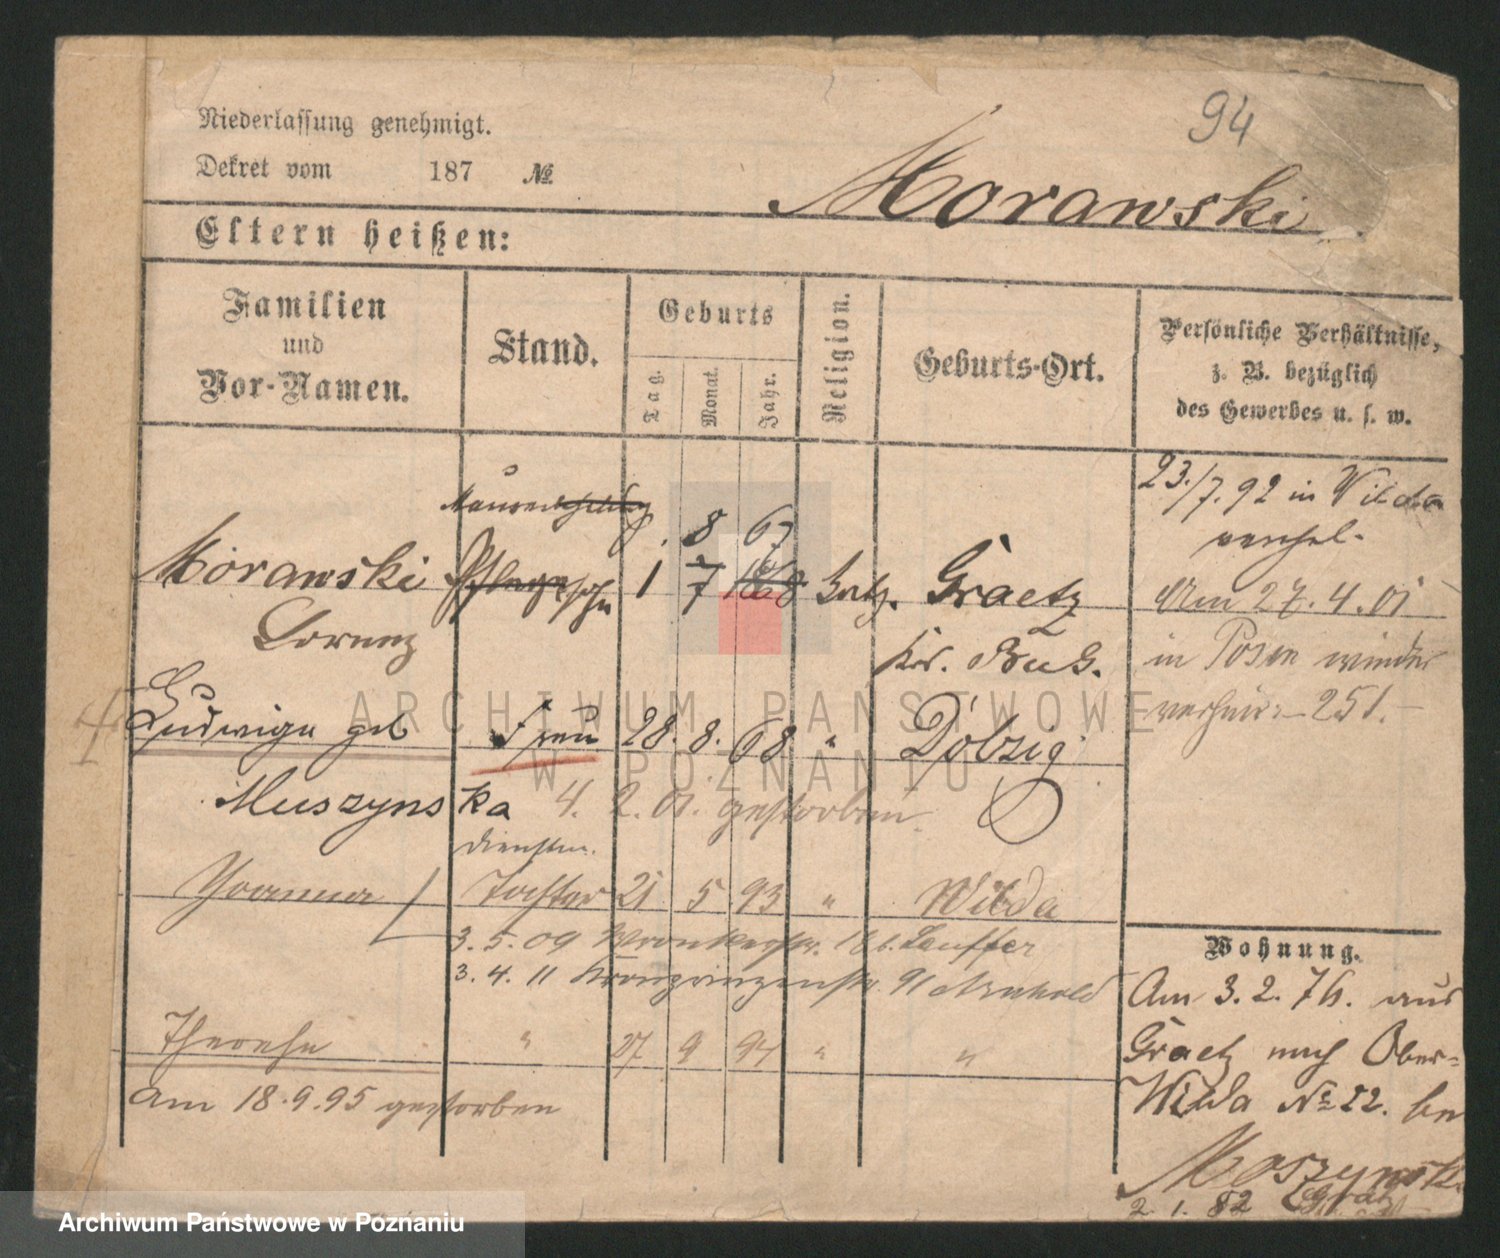 94
Niederlassung genehmigt.
Dekret vom 187 №
Morawski
Eltern heißen:
Familien und Vor-Namen.
Stand.
Geburts
Tag. Monat. Jahr.
Religion.
Geburts-Ort.
Persönliche Verhältnisse,
z. B. bezüglich
des Gewerbes u. s. w.
23./7. 92 in Wilda
verehel.
8 67
Morawski Pflegesohn 1 7 1868 kath. Graetz
Lorenz
Kr. Buk.
Am 27. 4. 01
in Posen wieder
251.
Ludwiga geb Frau 28. 8. 68 " Dolzig
Muszynska 4. 2. 01. gestorben.
Dienstm.
Joanna Tochter 21 5 93 " Wilda
3. 5. 09 Wronkerstr. 18 b. Lauffer
3. 4. 11 Kronprinzenstr. 91 Arnhold
Therese " 27 9 94 " "
Am 18. 9. 95 gestorben
Wohnung.
Am 3. 2. 76. aus
Graetz nach Ober-
Wilda № 22. bei
Moszynski
2. 1. 82
ARCHIWUM PAŃSTWOWE
W POZNANIU
Archiwum Państwowe w Poznaniu